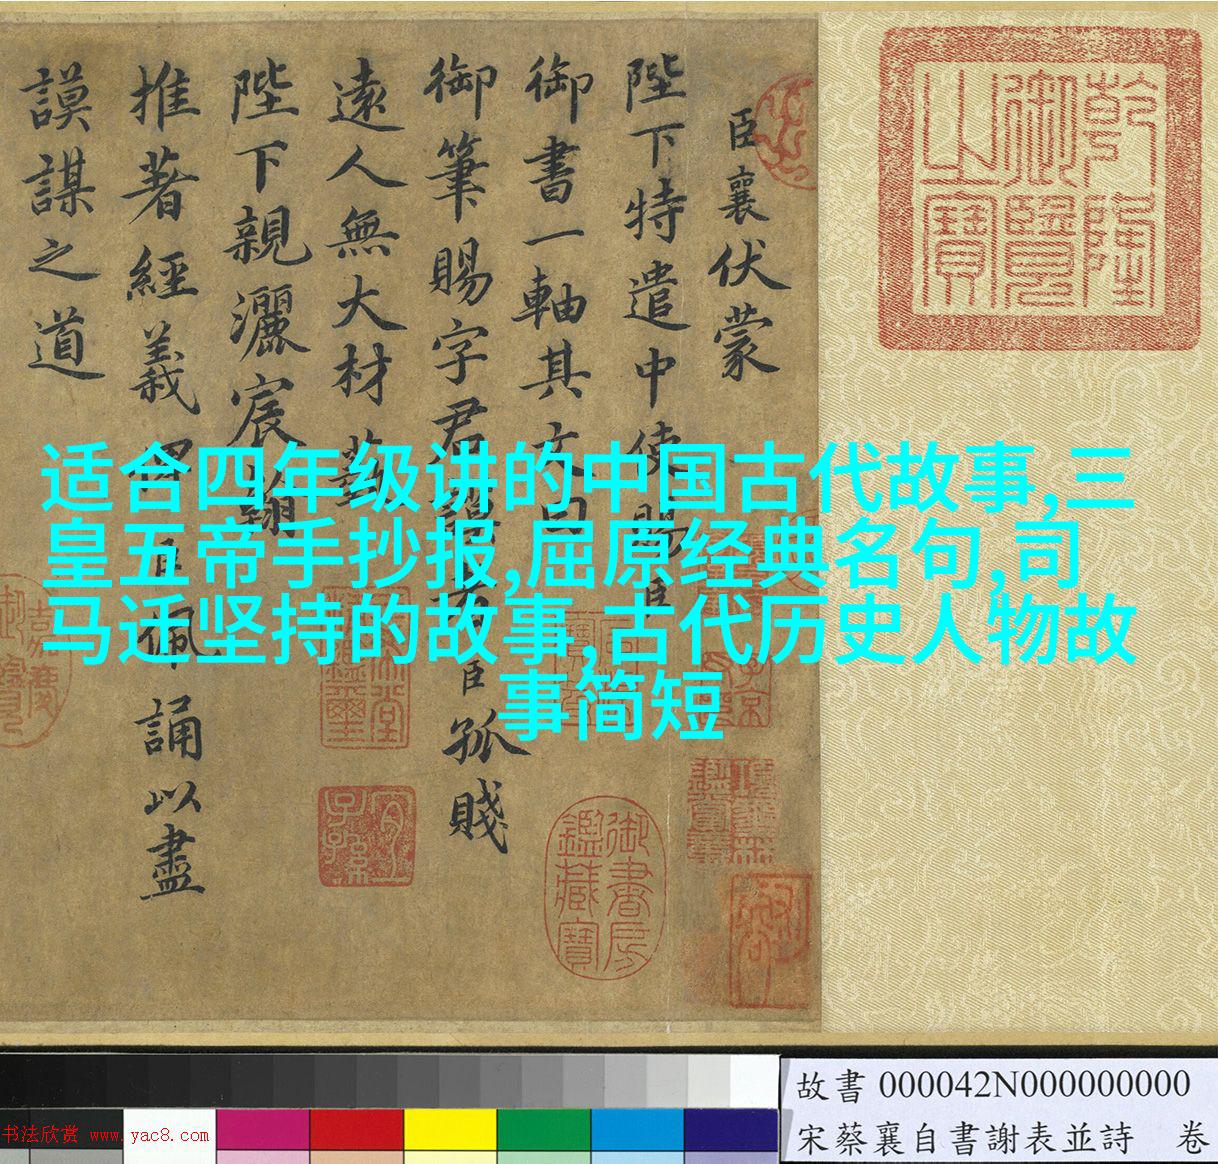 乾隆
御覽
之寶
臣襄伏蒙
陛下特遣中使賜臣
御書一軸其文曰
御筆賜字君謨者臣孤賤
遠人無大材藝
陛下親灑宸翰
推著經義臣佩誦以盡
謨謀之道
适合四年级讲的中国古代故事,三
皇五帝手抄报,屈原经典名句,司
马迁坚持的故事,古代历史人物故
事简短
御書房
鑑藏寶
宜
子孫
故書 000042N000000000
宋蔡襄自書謝表並詩 卷
书法欣赏 www.yac8.com